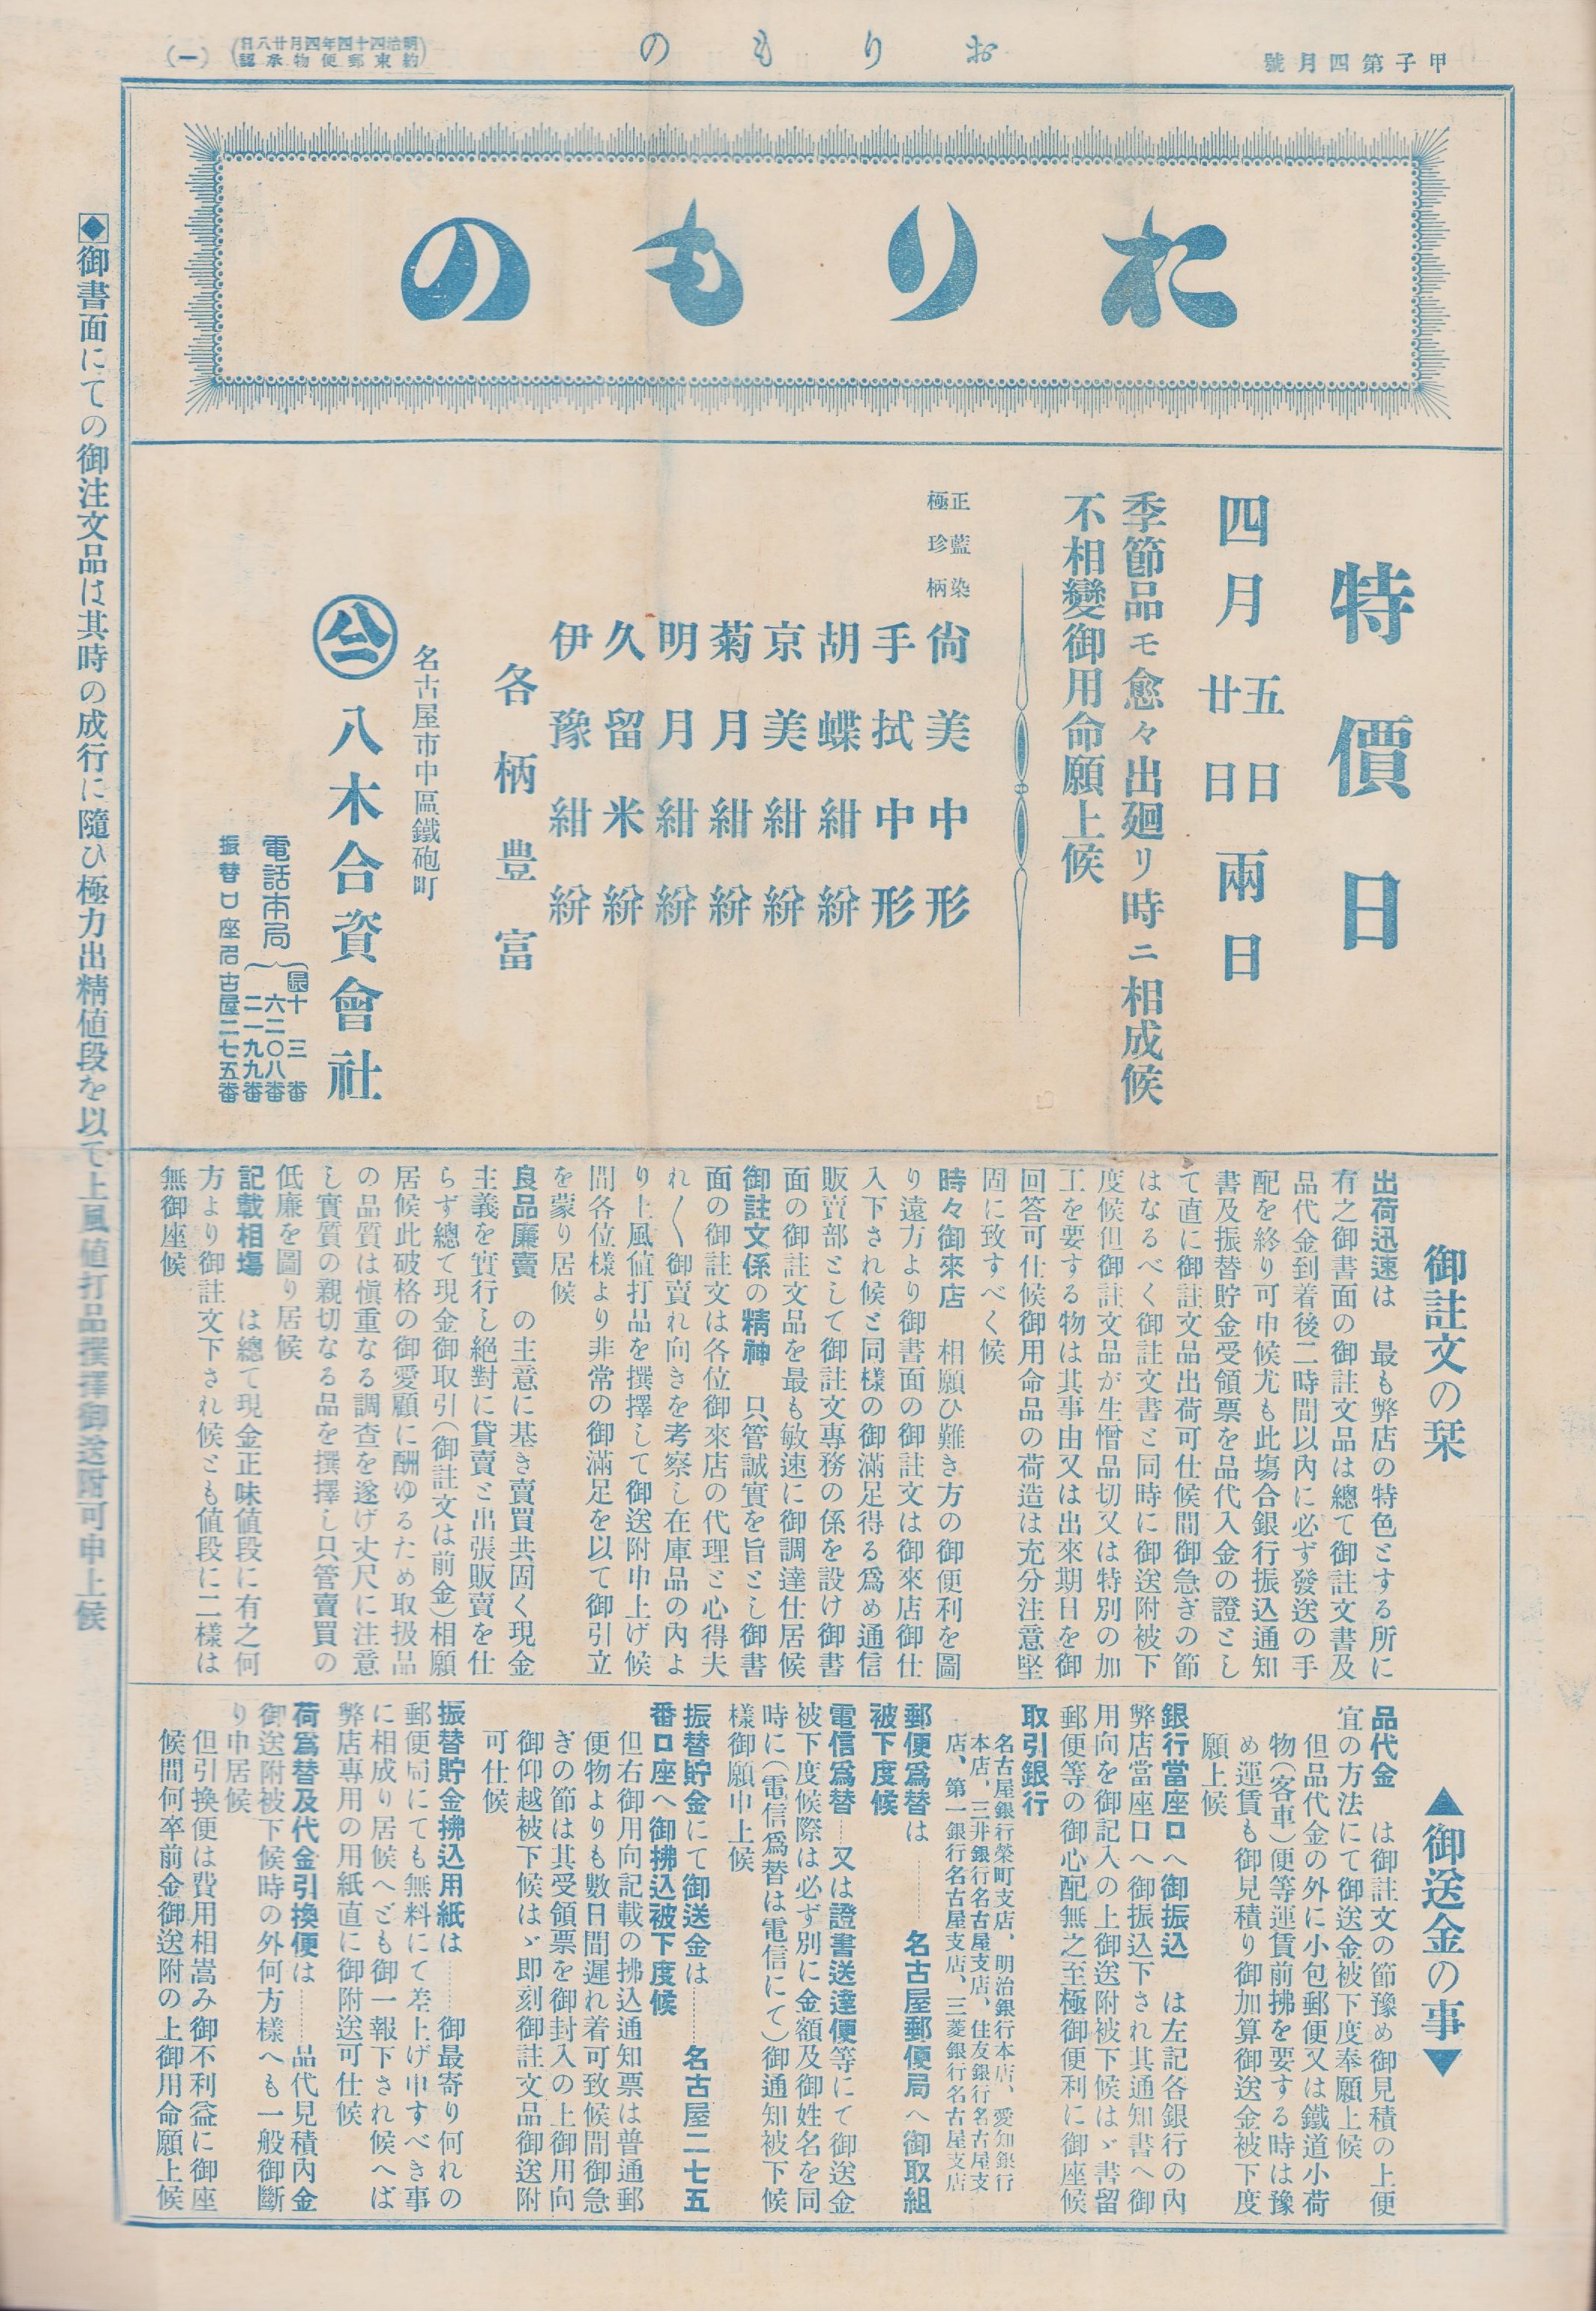 甲子第四月號
おりもの
明治四十四年四月廿八日
約束郵便物承認
(一)
おりもの
特價日
四月五日廿日兩日
季節品モ愈々出廻リ時ニ相成候
不相變御用命願上候
正藍染
極珍柄
尙美中形
手拭中形
胡蝶紺絣
京美紺絣
菊月紺絣
明月紺絣
久留米絣
伊豫紺絣
各柄豊富
名古屋市中區鐵砲町
八木合資會社
電話本局
長十三番
六二〇八番
二一九九番
振替口座名古屋二七五番
御註文の栞
出荷迅速は 最も弊店の特色とする所に
有之御書面の御註文品は總て御註文書及
品代金到着後二時間以內に必ず發送の手
配を終り可申候尤も此塲合銀行振込通知
書及振替貯金受領票を品代入金の證とし
て直に御註文品出荷可仕候間御急ぎの節
はなるべく御註文書と同時に御送附被下
度候但御註文品が生憎品切又は特別の加
工を要する物は其事由又は出來期日を御
回答可仕候御用命品の荷造は充分注意堅
固に致すべく候
時々御來店 相願ひ難き方の御便利を圖
り遠方より御書面の御註文は御來店御仕
入下され候と同樣の御滿足得る爲め通信
販賣部として御註文專務の係を設け御書
面の御註文品を最も敏速に御調達仕居候
御註文係の精神 只管誠實を旨とし御書
面の御註文は各位御來店の代理と心得夫
れ〱御賣れ向きを考察し在庫品の內よ
り上風値打品を撰擇して御送附申上げ候
間各位樣より非常の御滿足を以て御引立
を蒙り居候
良品廉賣 の主意に基き賣買共固く現金
主義を實行し絕對に貸賣と出張販賣を仕
らず總て現金御取引(御註文は前金)相願
居候此破格の御愛顧に酬ゆるため取扱品
の品質は愼重なる調査を遂げ丈尺に注意
し實質の親切なる品を撰擇し只管賣買の
低廉を圖り居候
記載相塲 は總て現金正味値段に有之何
方より御註文下され候とも値段に二樣は
無御座候
▲御送金の事▼
品代金 は御註文の節豫め御見積の上便
宜の方法にて御送金被下度奉願上候
但品代金の外に小包郵便又は鐵道小荷
物(客車)便等運賃前拂を要する時は豫
め運賃も御見積り御加算御送金被下度
願上候
銀行當座口へ御振込 は左記各銀行の內
弊店當座口へ御振込下され其通知書へ御
用向を御記入の上御送附被下候はゞ書留
郵便等の御心配無之至極御便利に御座候
取引銀行
名古屋銀行榮町支店、明治銀行本店、愛知銀行
本店、三井銀行名古屋支店、住友銀行名古屋支
店、第一銀行名古屋支店、三菱銀行名古屋支店
郵便爲替は……名古屋郵便局へ御取組
被下度候
電信爲替…又は證書送達便等にて御送金
被下度候際は必ず別に金額及御姓名を同
時に(電信爲替は電信にて)御通知被下候
樣御願申上候
振替貯金にて御送金は……名古屋二七五
番口座へ御拂込被下度候
但右御用向記載の拂込通知票は普通郵
便物よりも數日間遲れ着可致候間御急
ぎの節は其受領票を御封入の上御用向
御仰越被下候はゞ即刻御註文品御送附
可仕候
振替貯金拂込用紙は……御最寄り何れの
郵便局にても無料にて差上げ申すべき事
に相成り居候へども御一報下され候へば
弊店專用の用紙直に御附送可仕候
荷爲替及代金引換便は……品代見積內金
御送附被下候時の外何方樣へも一般御斷
り申居候
但引換便は費用相嵩み御不利益に御座
候間何卒前金御送附の上御用命願上候
◆御書面にての御注文品は其時の成行に隨ひ極力出精値段を以て上風値打品撰擇御送附可申上候